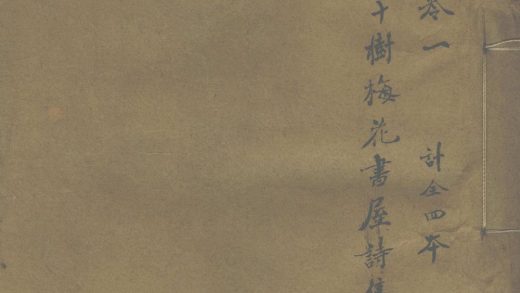 卷一
計全四本
十樹梅花書屋詩